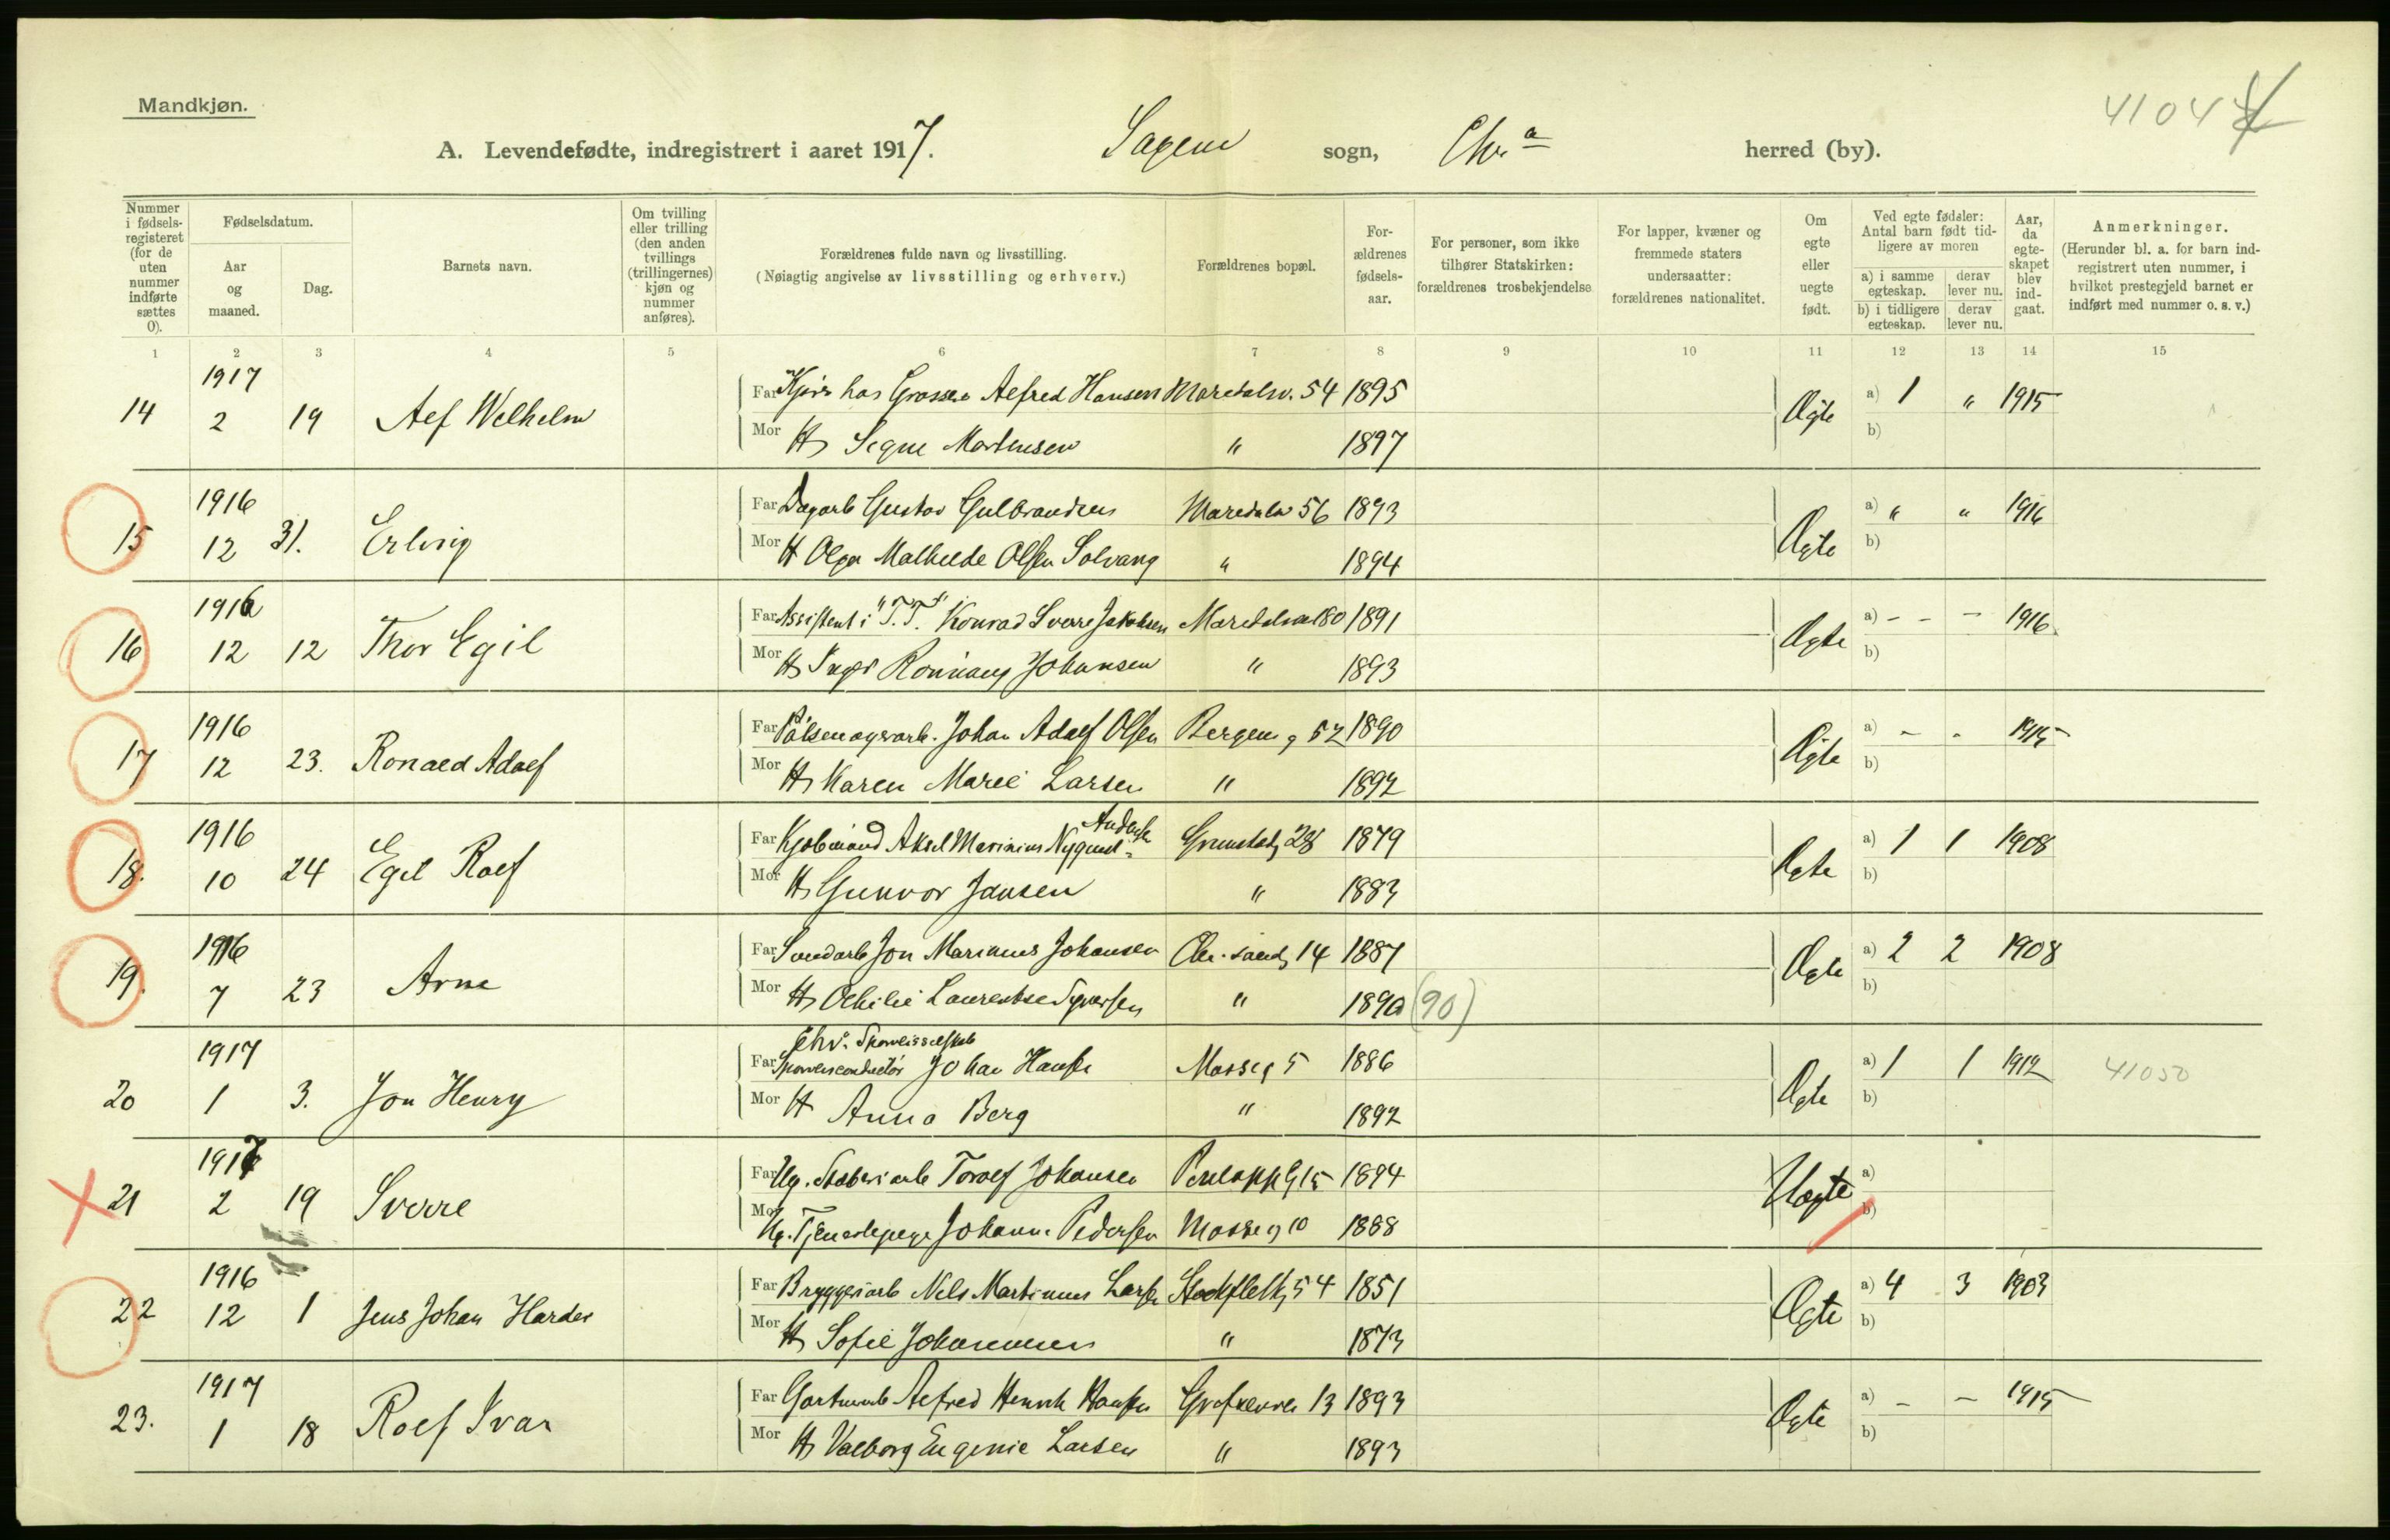 Mandkjøn.
41044
A. Levendefødte, indregistrert i aaret 1917. Sagene sogn, Chr.a herred (by).
Nummer i fødselsregisteret (for de uten nummer indførte sættes 0).
Fødselsdatum.
Aar og maaned.
Dag.
Barnets navn.
Om tvilling eller trilling (den anden tvillings (trillingernes) kjøn og nummer anføres).
Forældrenes fulde navn og livsstilling.
(Nøiagtig angivelse av livsstilling og erhverv.)
Forældrenes bopæl.
Forældrenes fødselsaar.
For personer, som ikke tilhører Statskirken: forældrenes trosbekjendelse
For lapper, kvæner og fremmede staters undersaatter: forældrenes nationalitet.
Om egte eller uegte født.
Ved egte fødsler: Antal barn født tidligere av moren
a) i samme egteskap.
derav lever nu.
b) i tidligere egteskap.
derav lever nu.
Aar, da egteskapet blev indgaat.
Anmerkninger.
(Herunder bl. a. for barn indregistrert uten nummer, i hvilket prestegjeld barnet er indført med nummer o. s. v.)
1 2 3 4 5 6 7 8 9 10 11 12 13 14 15
14 1917 2 19 Alf Wilhelm Far hos Grosser Alfred Hansen Maredalsv. 54 1895 Ægte a) 1 " 1915
Mor H Signe Martinsen " 1897 b)
15 1916 12 31. Erling Far Dagarb Gustav Gulbrandsen Maredalsv 56 1893 Ægte a) " " 1916
Mor H Olga Mathilde Olsen Solvang " 1894 b)
16 1916 12 12 Thor Egil Far Assistent i "T.T." Konrad Sverre Jakobsen Maredalsvei 180 1891 Ægte a) - - - 1916.
Mor H Inga Ronnaug Johansen " 1893 b)
17 1916 12 23. Ronald Adolf Far Pølsemagerarb. Johan Adolf Olsen Bergensg 52 1890 Ægte a) - - 1915
Mor H Karen Marie Larsen " 1892 b)
18. 1916 10 24 Egil Rolf Far Kjøbmand Aksel Marinius Nyquist- Andersen Grimstadg 28 1879 Ægte a) 1 1 1908
Mor H Gunvor Jansen " 1883 b)
19. 1916 7 23 Arne Far Jon Marinius Johansen Chr.sandg 14 1887 Ægte a) 2 2 1908
Mor H Othilie Laurentse Syversen " 1890 (90) b)
20 1917 1 3. Jon Henry Far Chr. Sporveisselskab Sporveisconductør Johan Hansen Mosseg 5 1886 Ægte a) 1 1 1912 41050
Mor H Anna Berg " 1892 b)
21 1917 2 19 Sverre Far Ug. Støberiarb Torolf Johansen 15 1894 Uægte a)
Mor Ug. Tjenestepige Johanne Pedersen Mosseg 10 1888 b)
22 1916 12 1 Jens Johan Harder Far Bryggeriarb Nils Martinius Larsen Stockflethg 54 1851 Ægte a) 4 3 1903
Mor H Sofie Johannesen " 1873 b)
23. 1917 1 18 Rolf Ivar Far Alfred Henrik Hansen 13 1893 Ægte a) - - 1915
Mor H Valborg Eugenie Larsen " 1893 b)